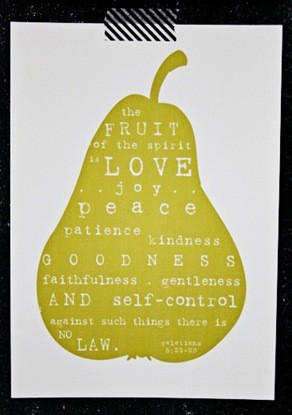 the
FRUIT
of the spirit
is LOVE
. . joy . .
peace
patience
kindness
GOODNESS
faithfulness . gentleness
AND self-control
against such things there is
NO
LAW.
galatians
5:22-23